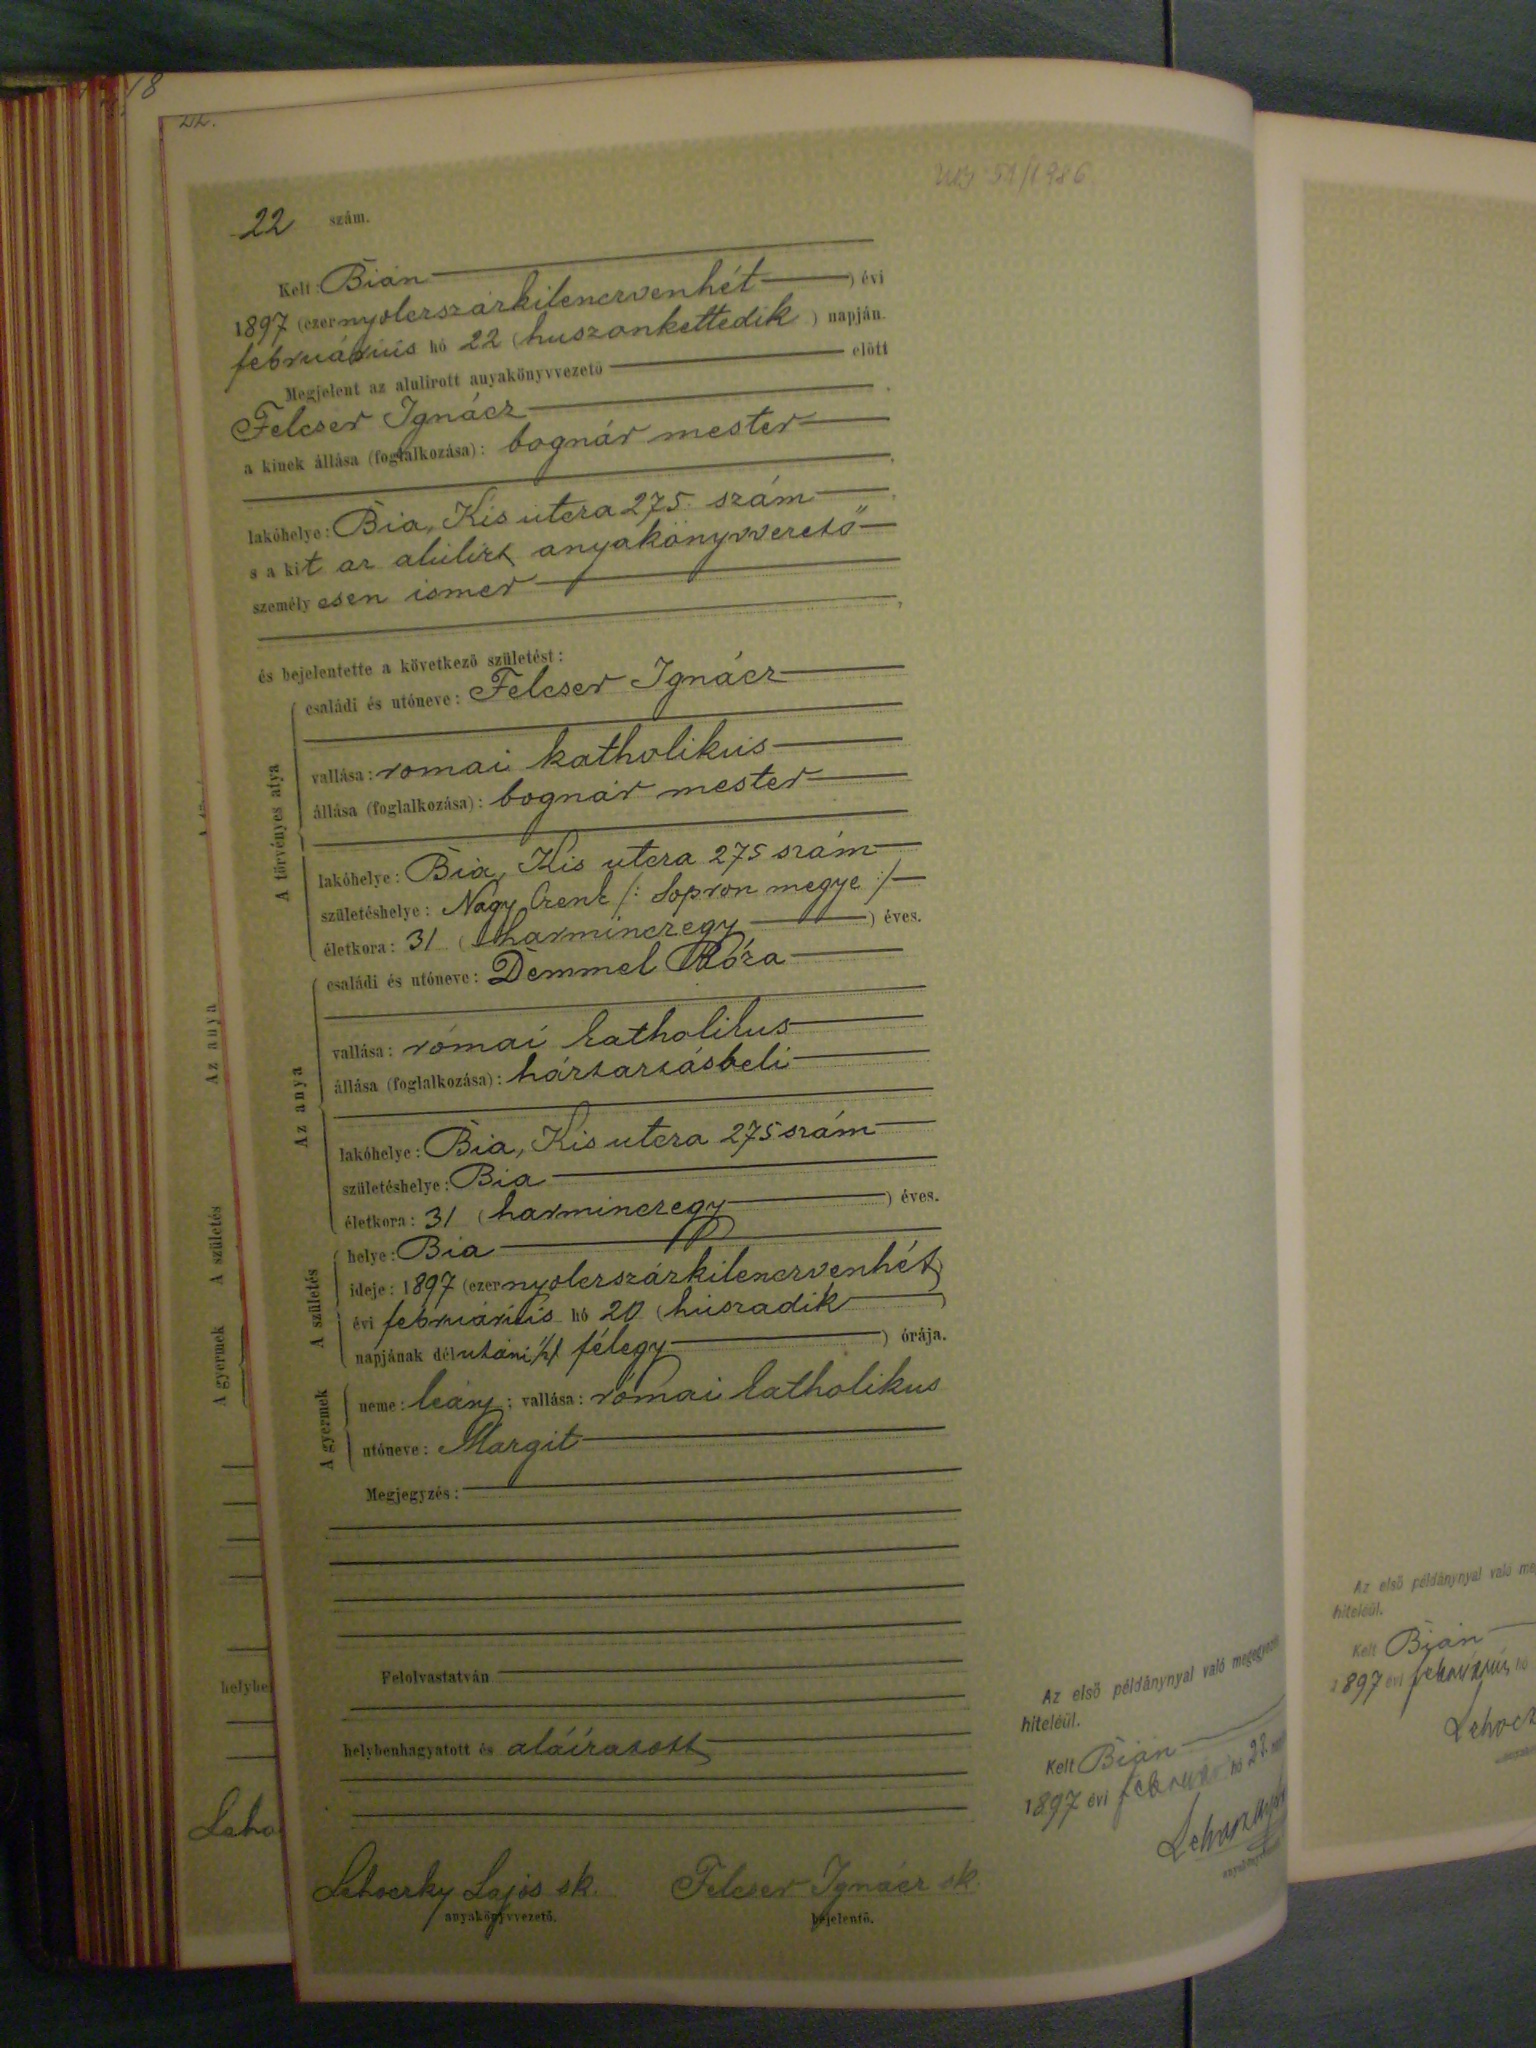 18
22.
51/1986
22 szám.
Kelt: Bián
1897 (ezernyolczszázkilenczvenhét) évi
februárius hó 22 (huszonkettedik) napján.
Megjelent az alulirott anyakönyvvezető előtt
Felcser Ignácz
a kinek állása (foglalkozása): bognár mester
lakóhelye: Bia, Kis utcza 275. szám
s a kit az alulirt anyakönyvvezető
személyesen ismer
és bejelentette a következő születést:
A törvényes atya
családi és utóneve: Felcser Ignácz
vallása: romai katholikus
állása (foglalkozása): bognár mester
lakóhelye: Bia, Kis utcza 275 szám
születéshelye: Nagy Czenk /: Sopron megye :/
életkora: 31 (harminczegy) éves.
Az anya
családi és utóneve: Demmel Róza
vallása: római katholikus
állása (foglalkozása): háztartásbeli
lakóhelye: Bia, Kis utcza 275 szám
születéshelye: Bia
életkora: 31 (harminczegy) éves.
A születés
helye: Bia
ideje: 1897 (ezernyolczszázkilenczvenhét)
évi februárius hó 20 (húszadik)
napjának délutáni ½1 félegy) órája.
A gyermek
neme: leány; vallása: római katholikus
utóneve: Margit
Megjegyzés:
Felolvastatván
helybenhagyatott és aláíratott
Lehoczky Lajos sk. Felcser Ignácz sk.
anyakönyvvezető. bejelentő.
Az első példánynyal való megegyezés
hiteléül.
Kelt Bián
1897 évi február hó 23.
Az anya
A születés
A gyermek
helybe
Leho
Az első példánynyal való me
hiteléül.
Kelt Bián
1897 évi február hó
Lehocz